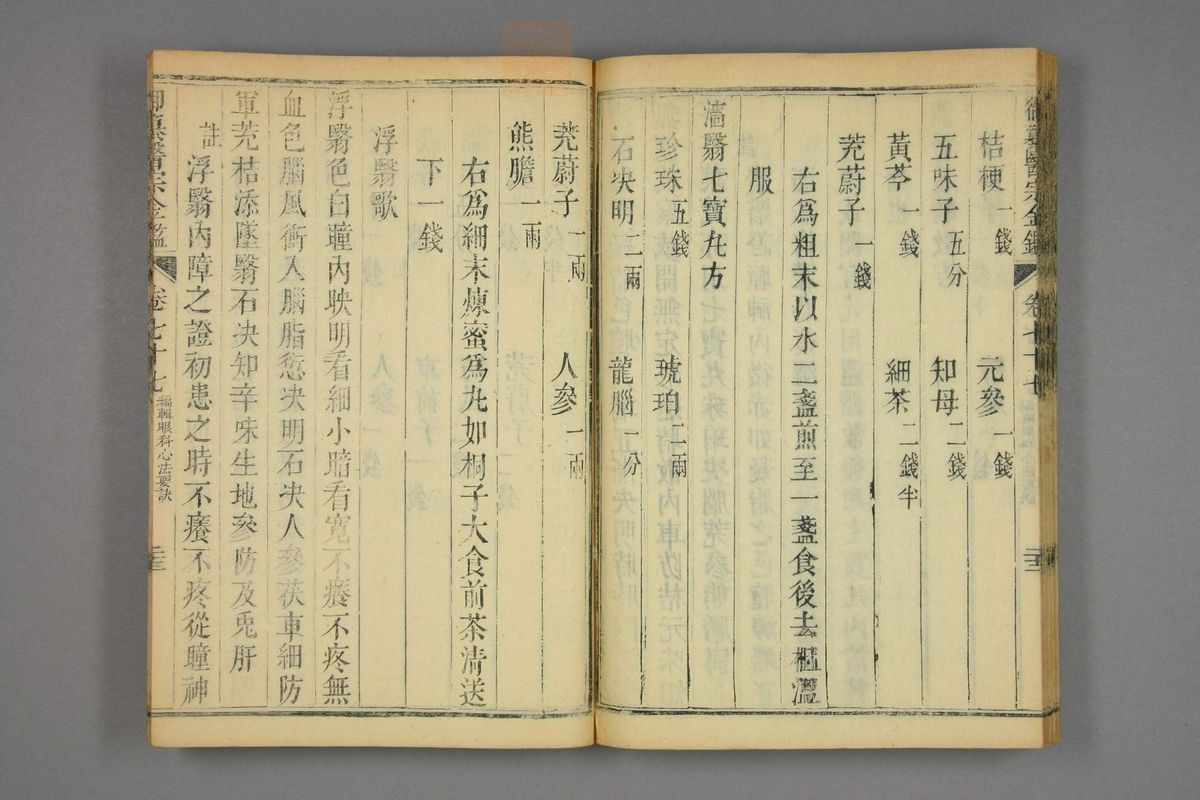 桔梗一錢 元參一錢
五味子五分 知母二錢
黃芩一錢 細茶二錢半
茺蔚子一錢
右爲粗末以水二盞煎至一盞食後去柤溫
服
濇翳七寶丸方
珍珠五錢 琥珀二兩
石决明二兩 龍腦一分
茺蔚子一兩 人參一兩
熊膽一兩
右爲細末煉蜜爲丸如桐子大食前茶清送
下一錢
浮翳歌
浮翳色白瞳內映明看細小暗看寬不癢不疼無
血色腦風衝入腦脂愆决明石决人參茯車細防
軍茺桔添墜翳石决知辛味生地參防及兎肝
註浮翳內障之證初患之時不癢不疼從瞳神
醫宗金鑑 卷七十七 編輯眼科心法要訣